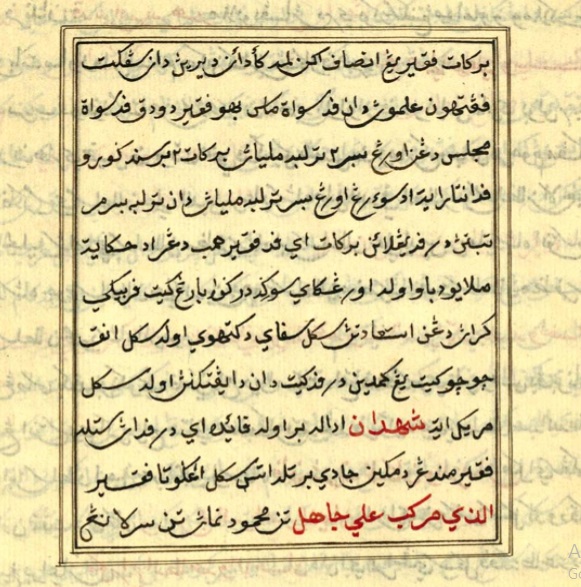 بركات فقير يڠ انصاف اكن لمه كأدائن ديرين دان سڤكت
ڤڠتهون علموڽ دان ڤد سواة ماس بهو فقير دودق ڤد سواة
مجلس دڠن اورڠ بسر٢ ترلبه ملياڽ بركات٢ برسند ݢورو
ڤد انتارا ايت اد سؤرڠ اورڠ بسر ترلبه ملياڽ دان ترلبه بسر مر
تبتڽ در ڤد يڠلائن بركات اي ڤد فقير همب دڠر اد حكاية
ملايو دباوا اوله اورڠ ݢوي سوݢياڽ در ݢوا بارڠ كيت ڤربايكي
كران دڠن استعادتڽ سكل سڤاي دكتهوي اوله سكل انق
چوچو كيت يڠ كمدين در ڤد كيت دان دايڠتكنڽ اوله سكل
مريكئيت شهدان اداله براوله فائده اي در ڤداڽ ستله
فقير مندڠر دمكين جادي برتله اتس سكل اڠݢوتا فقير
الذي مركب على جاهل تن محمود نماڽ تن سري لانڠ